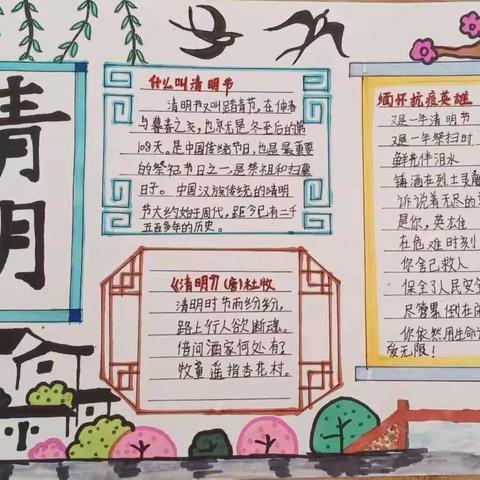 清明
什么叫清明节
清明节又叫踏青节，在仲春
与暮春之交，也就是冬至后的第
108天。是中国传统节日，也是最重要
的祭祀节日之一，是祭祖和扫墓
日子。中国汉族传统的清明
节大约始于周代，距今已有二千
五百多年的历史。
《清明》(唐)杜牧
清明时节雨纷纷，
路上行人欲断魂。
借问酒家何处有
牧童遥指杏花村。
缅怀抗疫英雄
又是一年清明节
又是一年祭扫时
鲜花伴泪水
铺洒在烈士灵
诉说着无尽的
是你，英雄
在危难时刻
你舍己救人
保全了人民安
尽管累倒在
你依然用生命
爱无限！